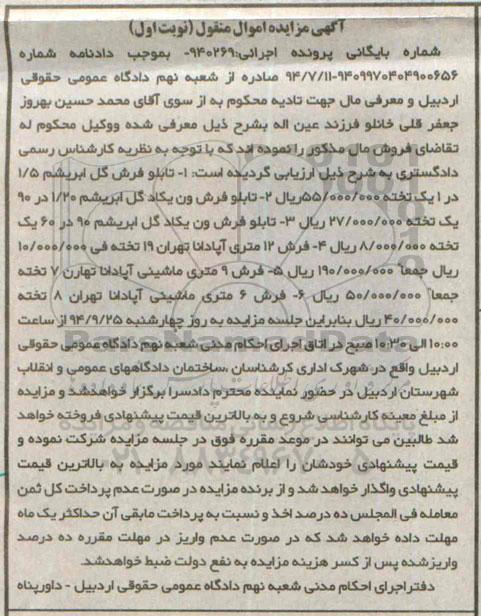 آگهی مزایده اموال منقول (نوبت اول)
شماره بایگانی پرونده اجرائی:۹۴۰۲۶۹- بموجب دادنامه شماره
۹۴۰۹۹۷۰۴۰۴۹۰۰۶۵۶-۹۴/۷/۱۱ صادره از شعبه نهم دادگاه عمومی حقوقی
اردبیل و معرفی مال جهت تادیه محکوم به از سوی آقای محمد حسین بهروز
جعفر قلی خانلو فرزند عین اله بشرح ذیل معرفی شده ووکیل محکوم له
تقاضای فروش مال مذکور را نموده اند که با توجه به نظریه کارشناس رسمی
دادگستری به شرح ذیل ارزیابی گردیده است: ۱- تابلو فرش گل ابریشم ۱/۵
در ۱ یک تخته ۵۵/۰۰۰/۰۰۰ریال ۲- تابلو فرش ون یکاد گل ابریشم ۱/۲۰ در ۹۰
یک تخته ۲۷/۰۰۰/۰۰۰ ریال ۳- تابلو فرش ون یکاد گل ابریشم ۹۰ در ۶۰ یک
تخته ۸/۰۰۰/۰۰۰ ریال ۴- فرش ۱۲ متری آپادانا تهران ۱۹ تخته فی ۱۰/۰۰۰/۰۰۰
ریال جمعا ۱۹۰/۰۰۰/۰۰۰ ریال ۵- فرش ۹ متری ماشینی آپادانا تهارن ۷ تخته
جمعا ۵۰/۰۰۰/۰۰۰ ریال ۶- فرش ۶ متری ماشینی آپادانا تهران ۸ تخته
۴۰/۰۰۰/۰۰۰ ریال بنابراین جلسه مزایده به روز چهارشنبه ۹۴/۹/۲۵ از ساعت
۱۰:۰۰ الی ۱۰:۳۰ صبح در اتاق اجرای احکام مدنی شعبه نهم دادگاه عمومی حقوقی
اردبیل واقع در شهرک اداری کرشناسان ،ساختمان دادگاههای عمومی و انقلاب
شهرستان اردبیل در حضور نماینده محترم دادسرا برگزار خواهدشد و مزایده
از مبلغ معینه کارشناسی شروع و به بالاترین قیمت پیشنهادی فروخته خواهد
شد طالبین می توانند در موعد مقرره فوق در جلسه مزایده شرکت نموده و
قیمت پیشنهادی خودشان را اعلام نمایند مورد مزایده به بالاترین قیمت
پیشنهادی واگذار خواهد شد و از برنده مزایده در صورت عدم پرداخت کل ثمن
معامله فی المجلس ده درصد اخذ و نسبت به پرداخت مابقی آن حداکثر یک ماه
مهلت داده خواهد شد که در صورت عدم واریز در مهلت مقرره ده درصد
واریزشده پس از کسر هزینه مزایده به نفع دولت ضبط خواهدشد.
دفتراجرای احکام مدنی شعبه نهم دادگاه عمومی حقوقی اردبیل - داورپناه